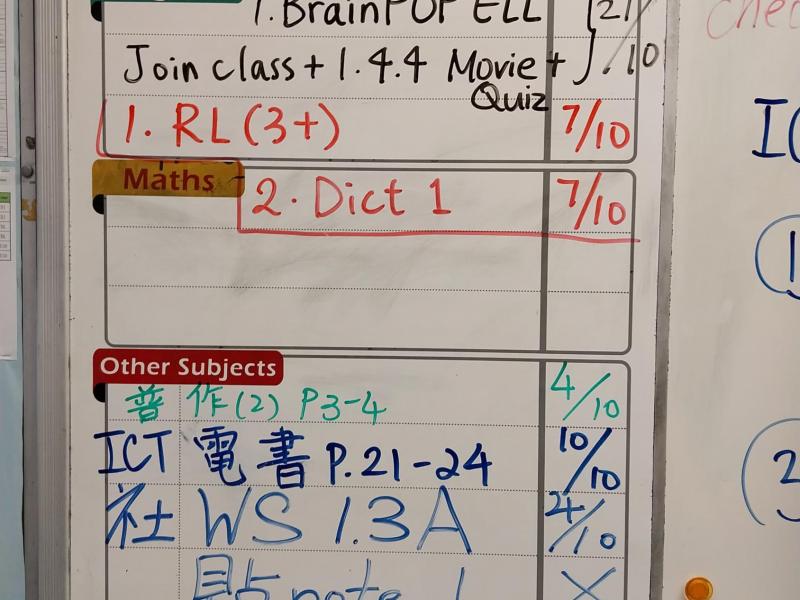 1. BrainPOP ELL 21/10
Join class + 1.4.4 Movie +
Quiz
1. RL (3+) 7/10
Maths
2. Dict 1 7/10
Other Subjects
普 作(2) P3-4 4/10
ICT 電書 P.21-24 10/10
社 WS 1.3A 4/10
貼 note 1 X
Chec
1
2